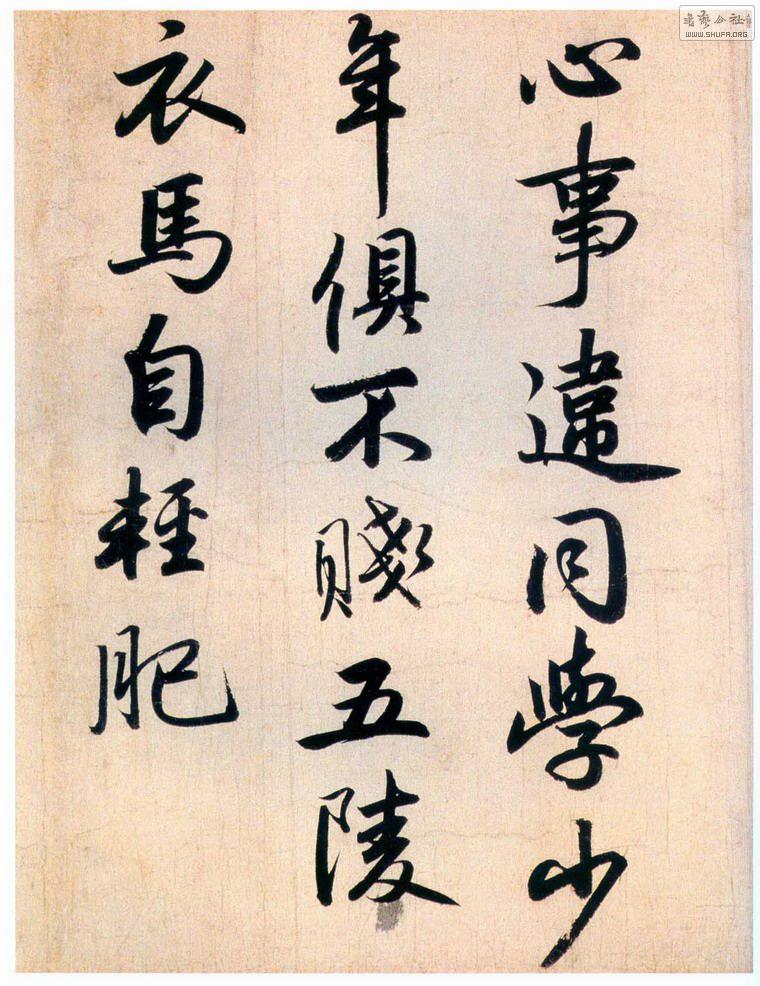 心事違同學少
年俱不賤五陵
衣馬自輕肥
書藝公社
WWW.SHUFA.ORG